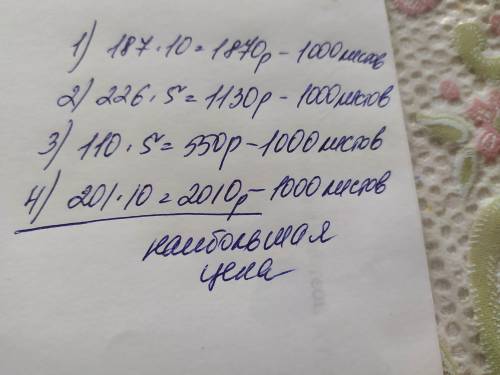 1) 187 · 10 = 1870р - 1000 листов
2) 226 · 5 = 1130р - 1000 листов
3) 110 · 5 = 550р - 1000 листов
4) 201 · 10 = 2010р - 1000 листов
наибольшая
цена